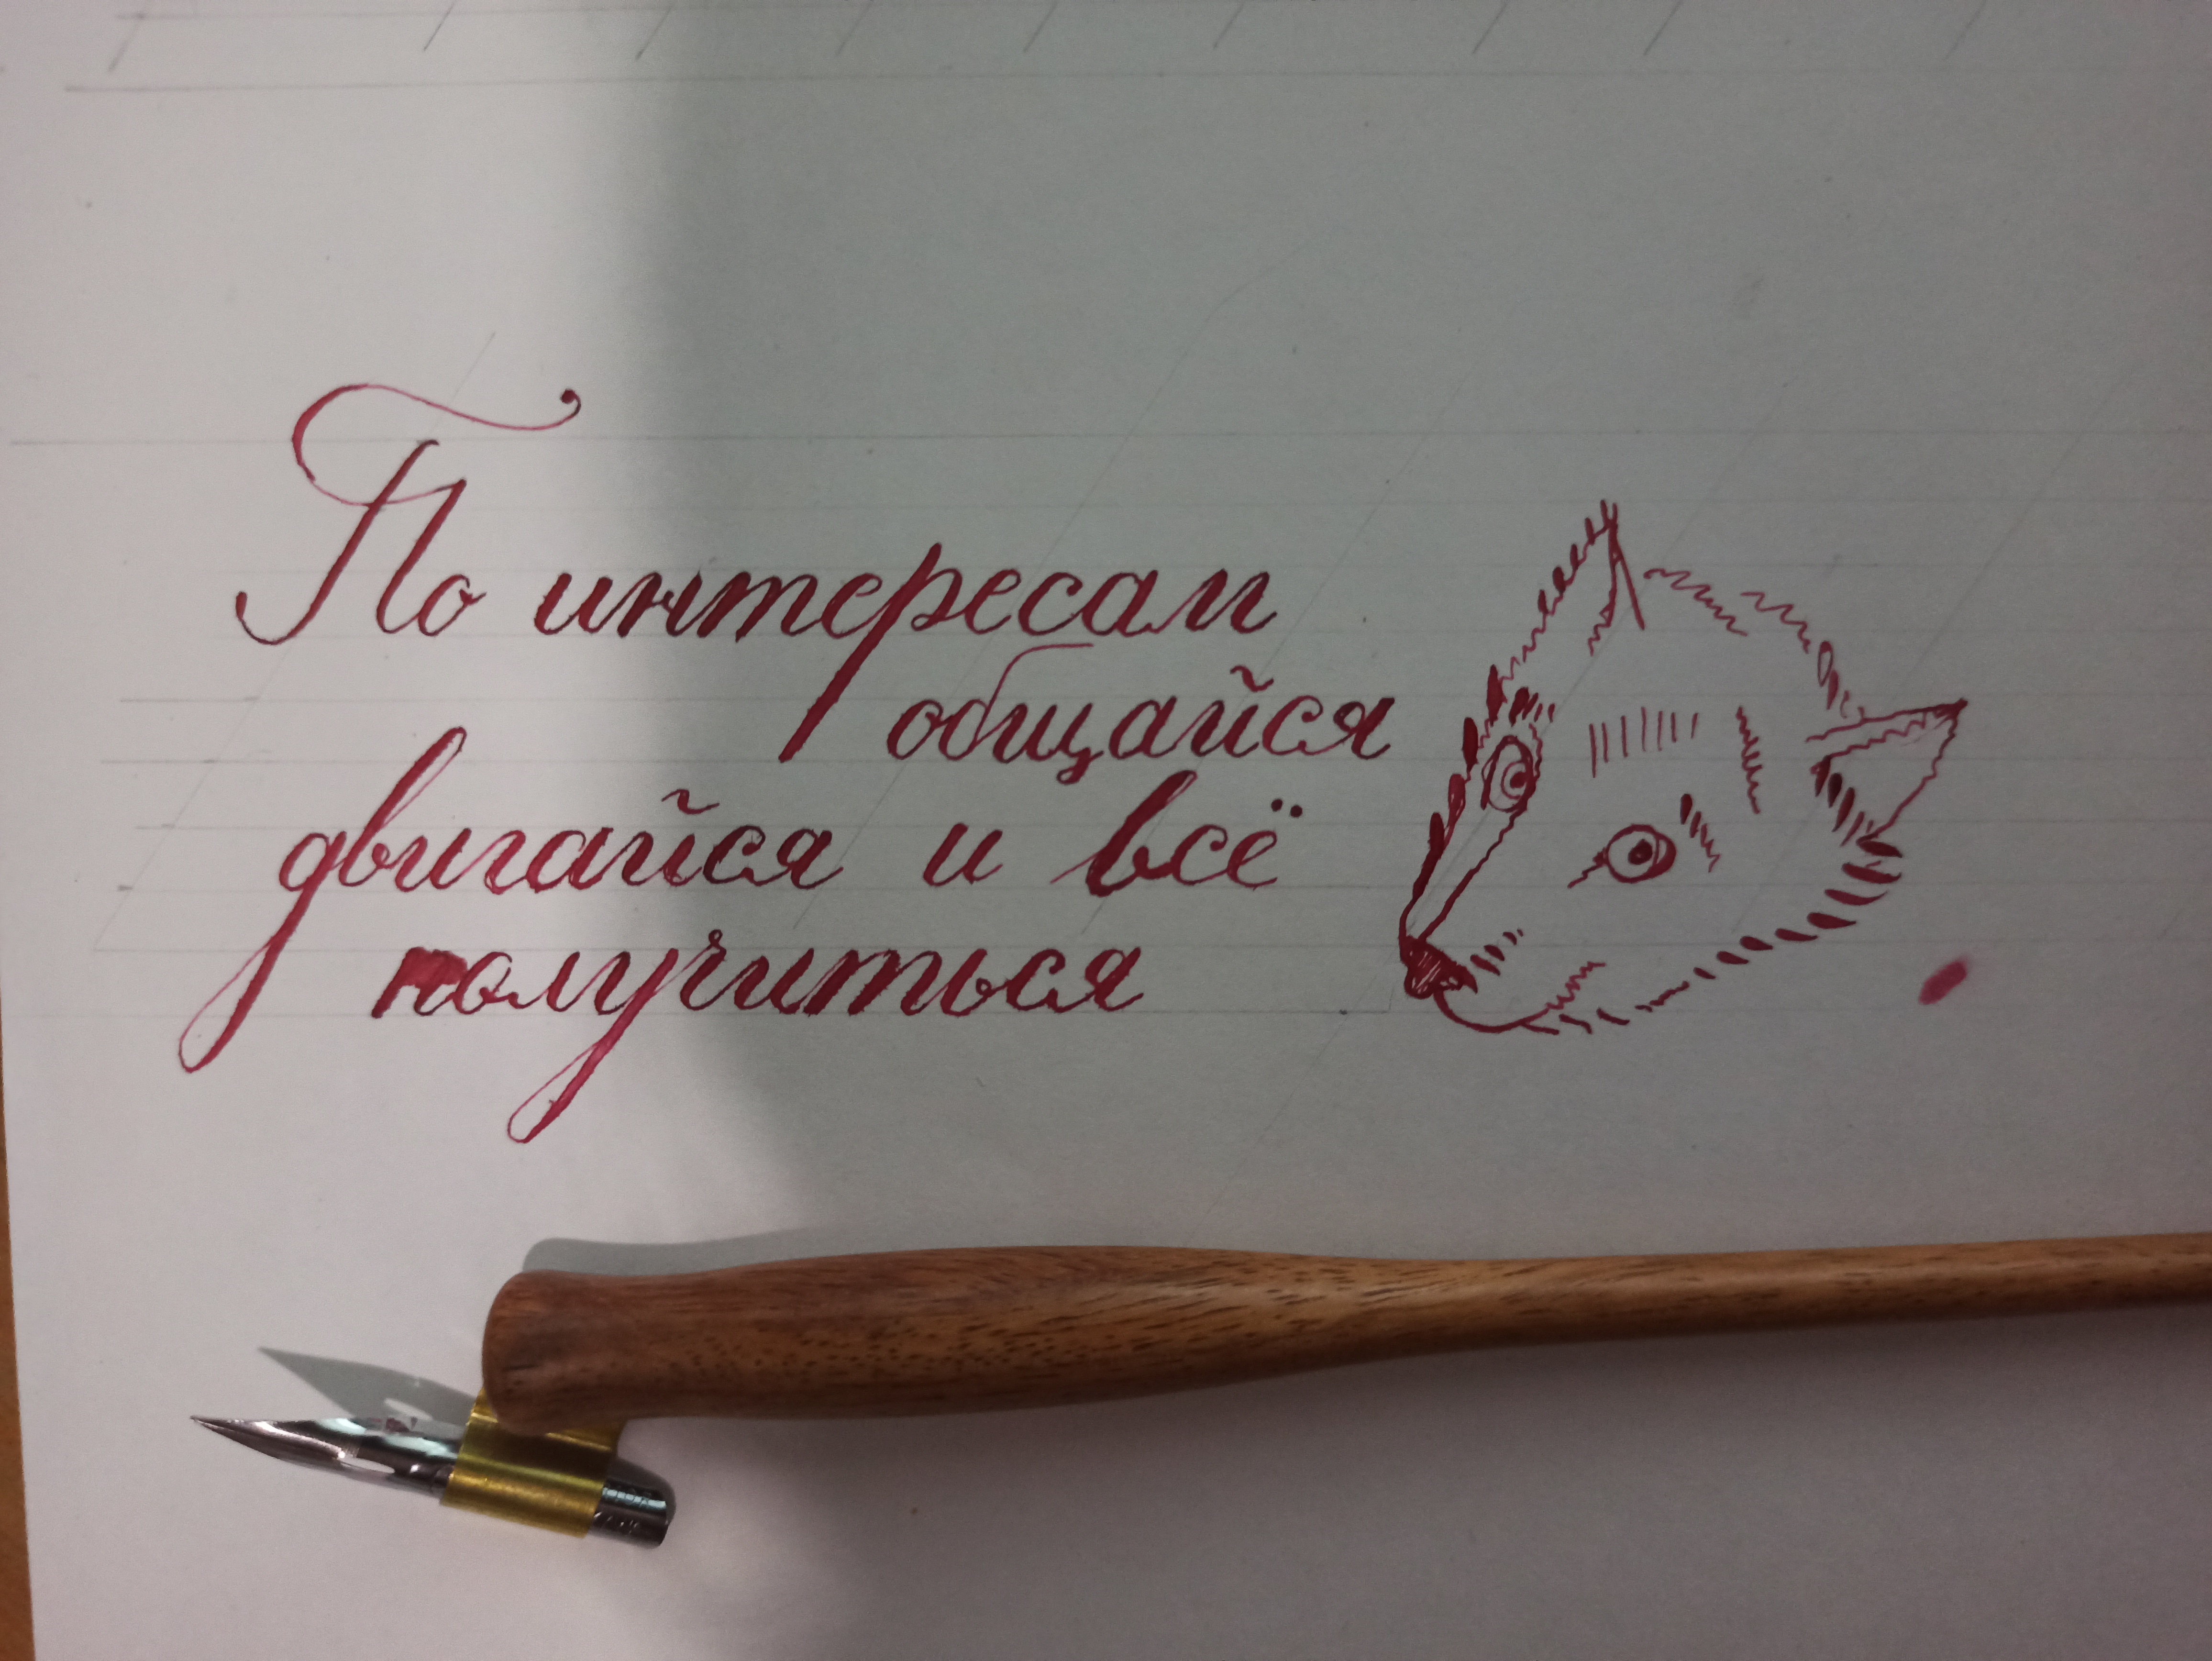 По интересам
общайся
двигайся и всё
получиться